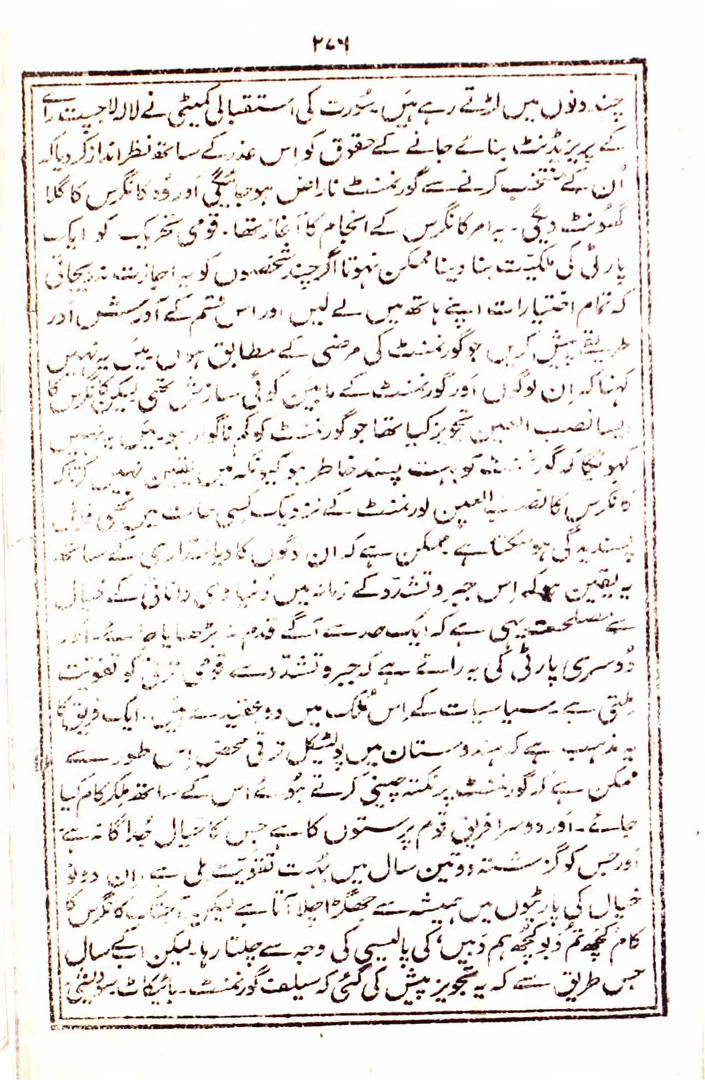 ۲۷۶
چند دنوں میں لڑتے رہے ہیں۔ سُورت کی استقبالی کمیٹی نے لالہ لاجپت رائے
کے پریزیڈنٹ بنائے جانے کے حقوق کو اس عذر کے ساتھ نظر انداز کر دیا کہ
اُن کے منتخب کرنے سے گورنمنٹ ناراض ہو جائیگی اور وُہ کانگرس کا گلا
گھونٹ دیگی۔ یہ امر کانگرس کے انجام کا آغاز تھا۔ قومی تحریک کو ایک
پارٹی کی ملکیّت بنا دینا ممکن نہوتا اگر چند شخصوں کو یہ اجازت نہ دیجاتی
کہ تمام اختیارات اپنے ہاتھ میں لے لیں اور اس قسم کے آدرش اور
طریقے پیش کریں جو گورنمنٹ کی مرضی کے مطابق ہوں۔ میں یہ نہیں
کہتا کہ اِن لوگوں اور گورنمنٹ کے مابین کوئی سازش تھی لیکن کانگرس کا
ایسا نصب العین تجویز کیا تھا جو گورنمنٹ کو کم ناگوار ہو۔ میں یہ نہیں
کہونگا کہ گورنمنٹ کو بہت پسند خاطر ہو کیونکہ میں یقین نہیں کرتا کہ
کانگرس کا نصب العین گورنمنٹ کے نزدیک کسی حالت میں بھی
پسندیدگی ہو سکتا ہے ممکن ہے کہ ان لوگوں کا دیانتداری کے ساتھ
یہ یقین ہو کہ اِس جبر و تشدّد کے زمانہ میں دُنیاوی دانائی کے خیال
سے مصلحت یہی ہے کہ ایک حد سے آگے قدم نہ بڑھایا جائے۔ اور
دُوسری پارٹی کی یہ رائے ہے کہ جبر و تشدّد سے قومی ترقی کو تقویت
ملتی ہے۔ سیاسیات کے اس مُلک میں دو عقیدے ہیں۔ ایک فریق کا
یہ مذہب ہے کہ ہندوستان میں پولٹیکل ترقی محض اِس طور سے
ممکن ہے کہ گورنمنٹ پر نکتہ چینی کرتے ہوئے اس کے ساتھ ملکر کام کیا
جائے۔ اور دوسرا فریق قوم پرستوں کا ہے جس کا خیال جُداگانہ ہے
اور جس کو گزشتہ دو تین سال میں بُہت تقویت ملی ہے۔ اِن دونو
خیال کی پارٹیوں میں ہمیشہ سے جھگڑا چلا آتا ہے لیکن آجتک کانگرس کا
کام کُچھ تم دبو کُچھ ہم دبیں، کی پالیسی کی وجہ سے چلتا رہا۔ لیکن اب کے سال
جس طریق سے کہ یہ تجویز پیش کی گئی کہ سیلف گورنمنٹ۔ بائیکاٹ سودیشی